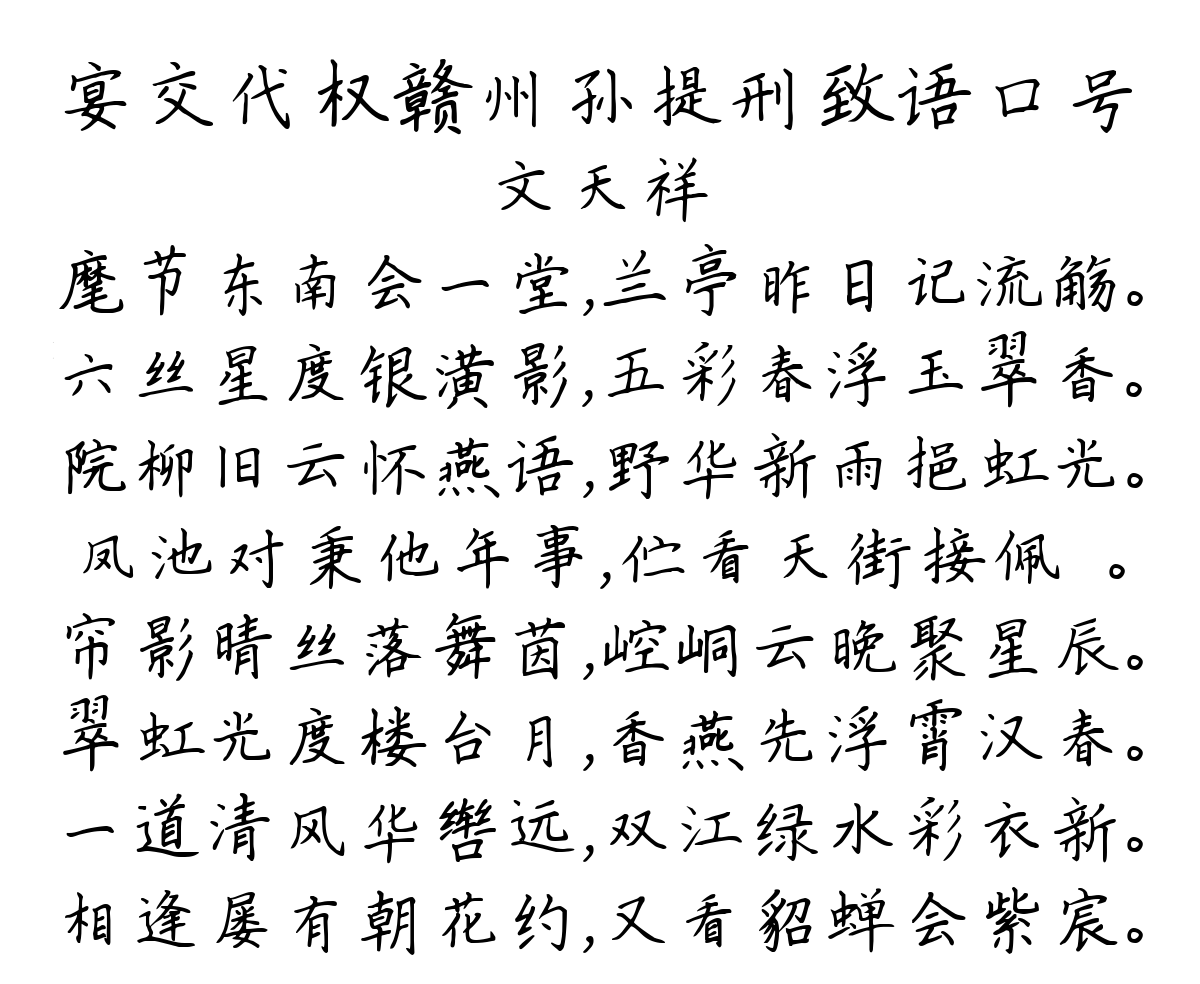 宴交代权赣州孙提刑致语口号
文天祥
麾节东南会一堂,兰亭昨日记流觞。
六丝星度银潢影,五彩春浮玉翠香。
院柳旧云怀燕语,野华新雨挹虹光。
凤池对秉他年事,伫看天街接佩 。
帘影晴丝落舞茵,崆峒云晚聚星辰。
翠虹光度楼台月,香燕先浮霄汉春。
一道清风华辔远,双江绿水彩衣新。
相逢屡有朝花约,又看貂蝉会紫宸。